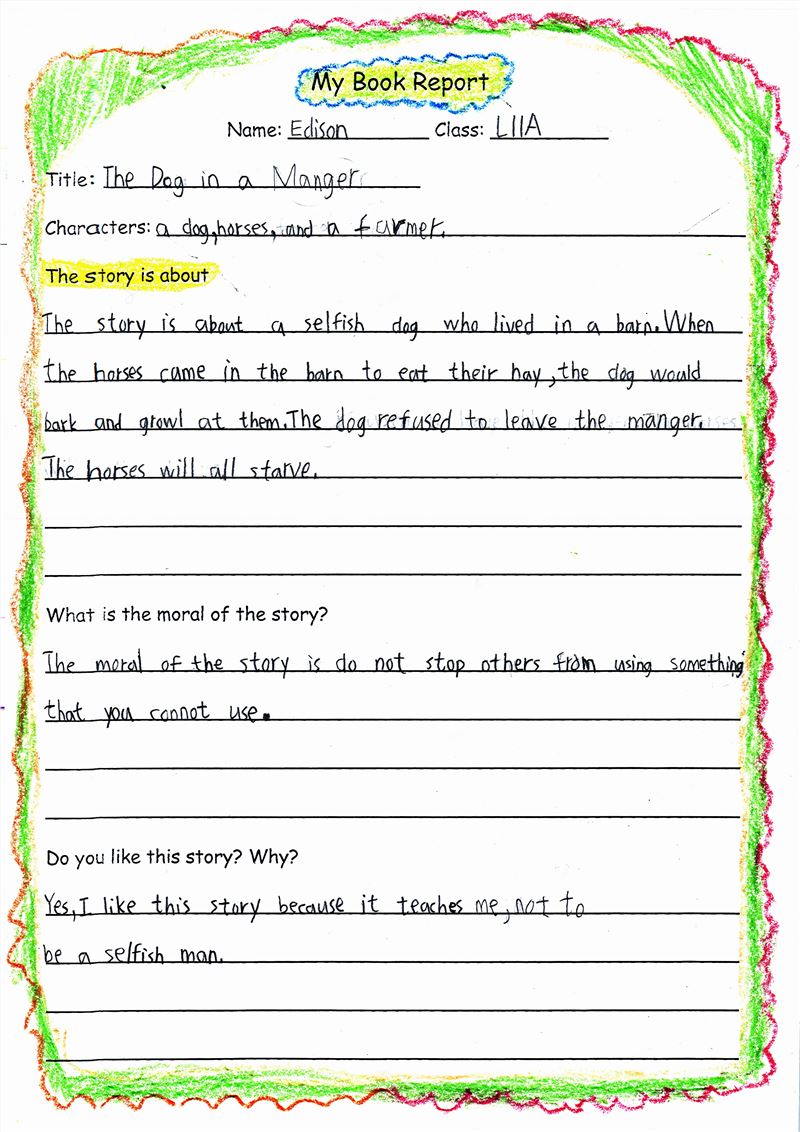 My Book Report
Name: Edison Class: L11A
Title: The Dog in a Manger
Characters: a dog, horses, and a farmer.
The story is about
The story is about a selfish dog who lived in a barn. When
the horses came in the barn to eat their hay, the dog would
bark and growl at them. The dog refused to leave the manger.
The horses will all starve.
What is the moral of the story?
The moral of the story is do not stop others from using something
that you connot use.
Do you like this story? Why?
Yes, I like this story because it teaches me, not to
be a selfish man.